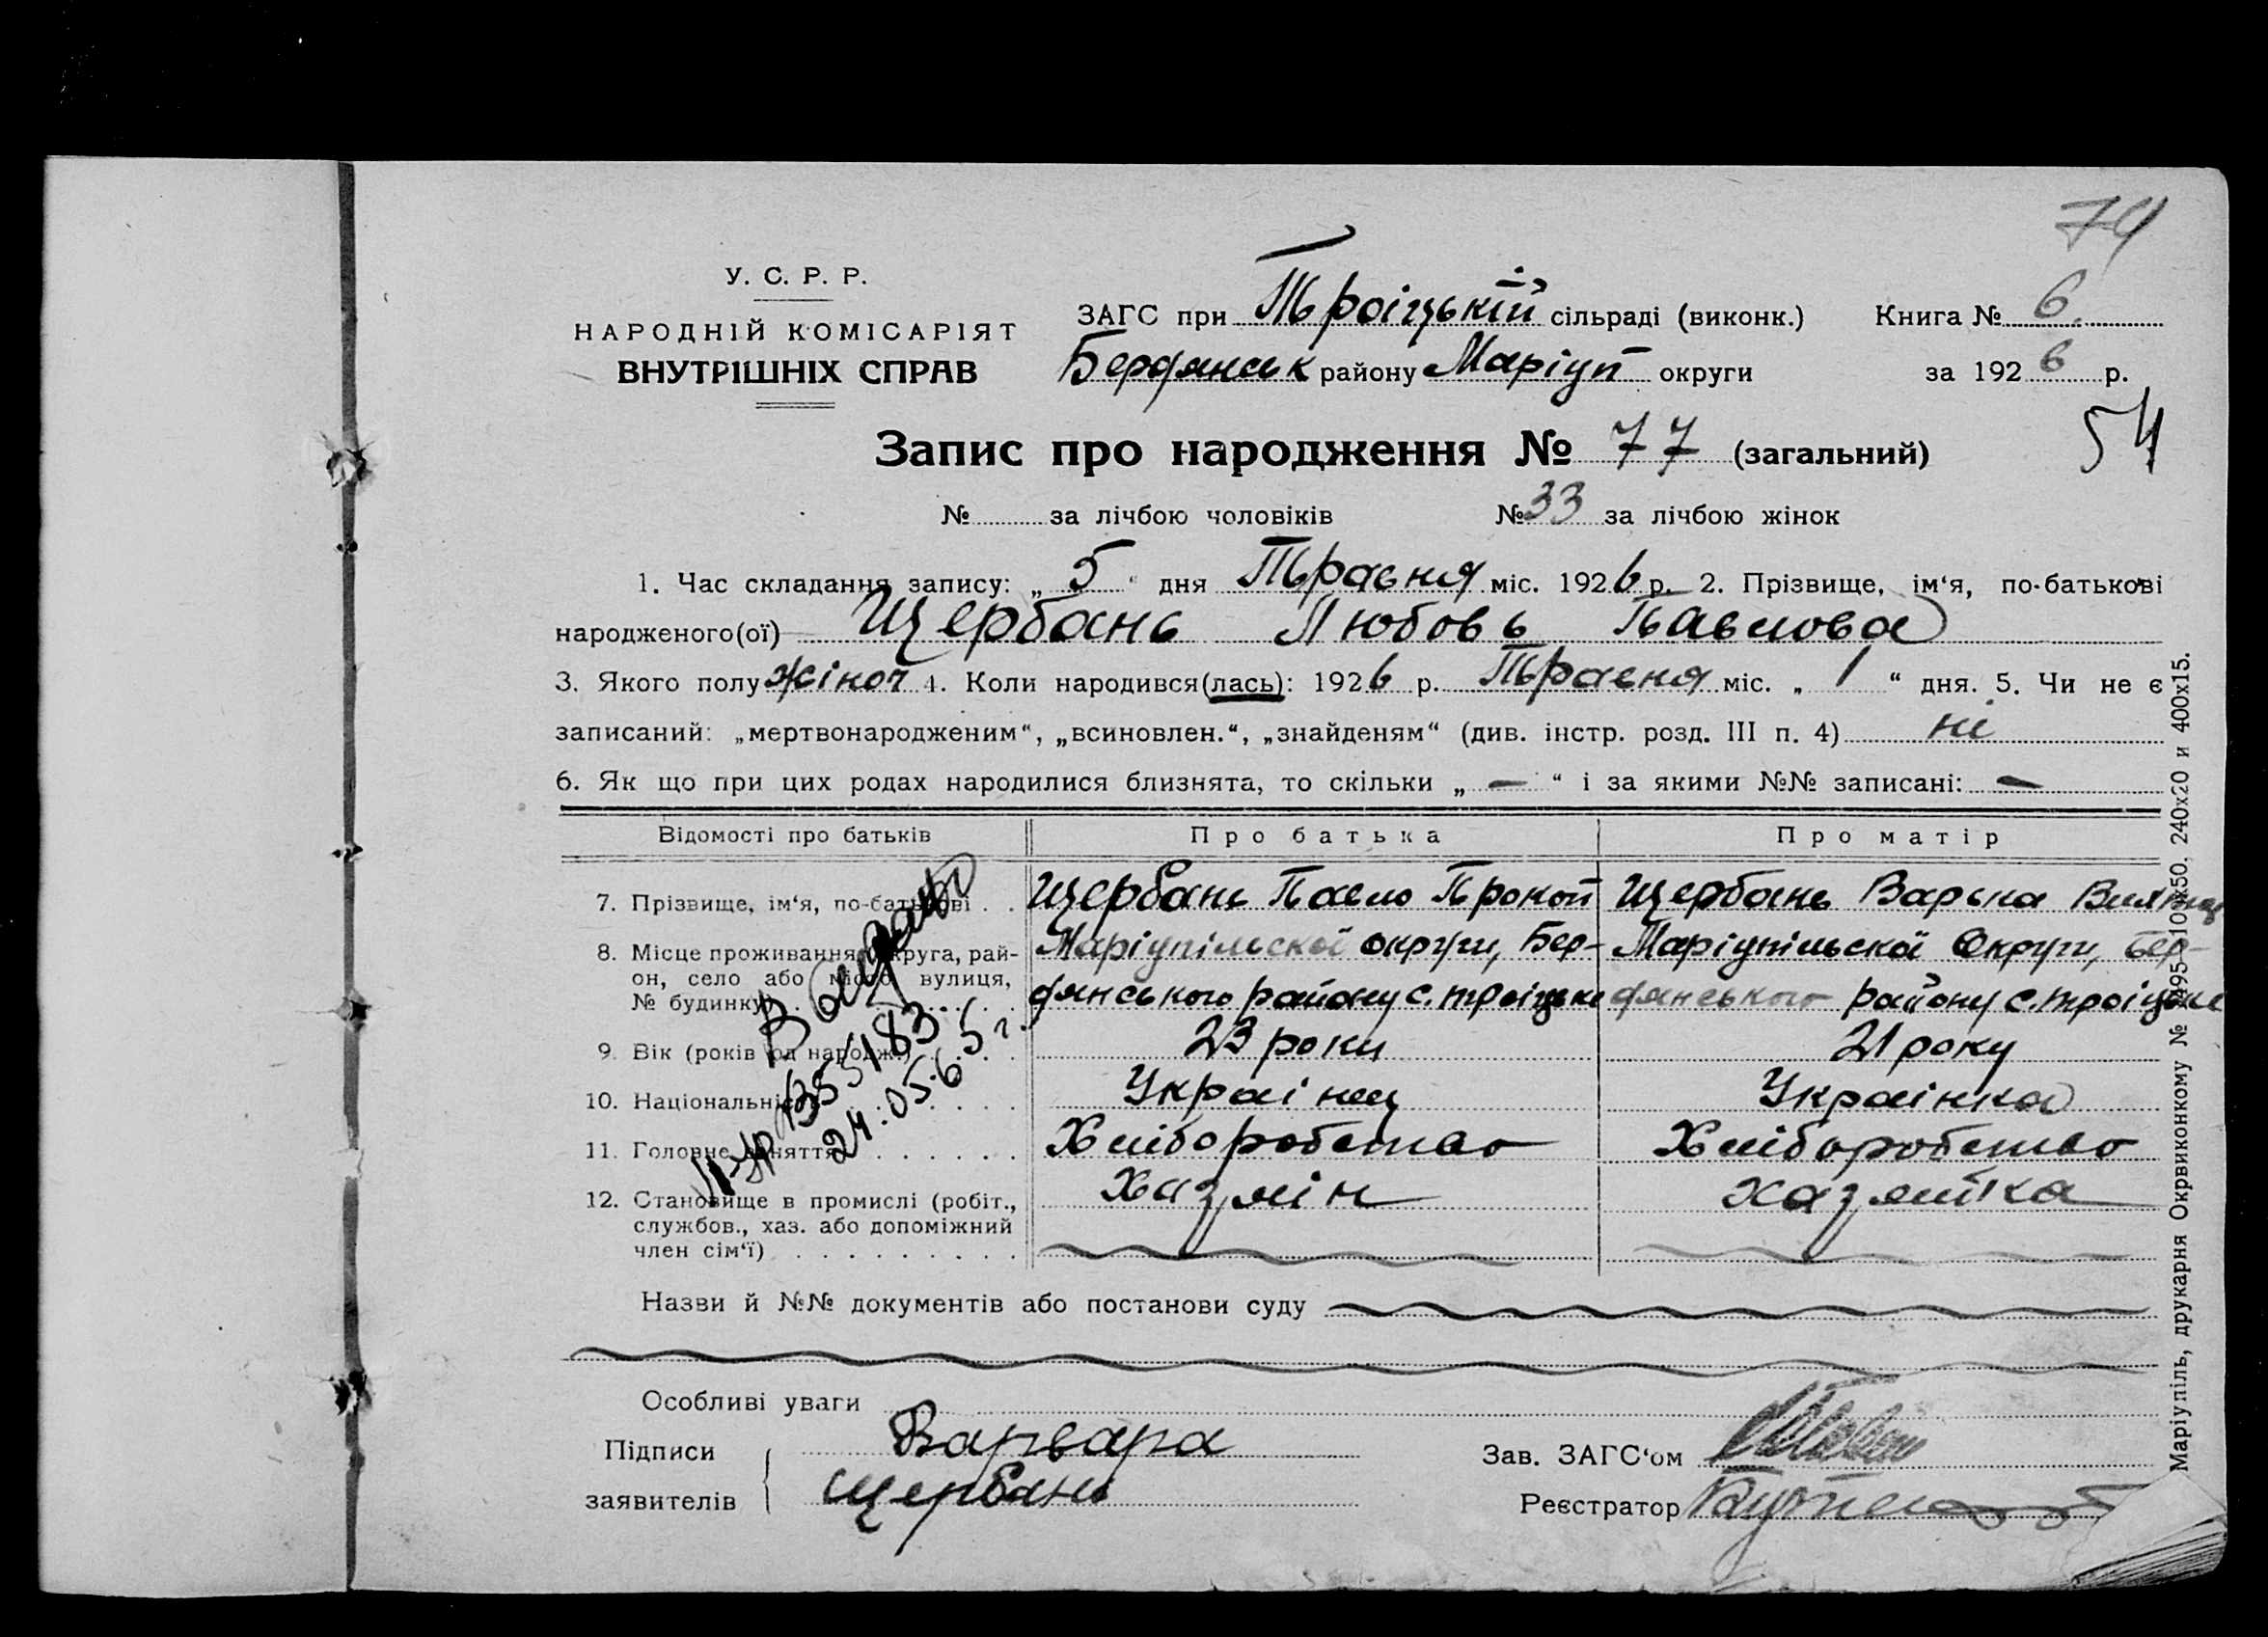 74
У. С. Р. Р.
НАРОДНІЙ КОМІСАРІЯТ
ВНУТРІШНІХ СПРАВ
ЗАГС при Троіцькій сільраді (виконк.) Книга № 6.
Бердянськ району Маріуп округи за 192 6 р.
54
Запис про народження № 77 (загальний)
№ за лічбою чоловіків № 33 за лічбою жінок
1. Час складання запису: „ 5 “ дня Травня міс. 192 6 р. 2. Прізвище, ім‘я, по-батькові
народженого(ої) Щербань Любовь Павлова
3. Якого полу жіноч 4. Коли народився(лась): 192 6 р. Травня міс. „ 1 “ дня. 5. Чи не є
записаний: „мертвонародженим“, „всиновлен.“, „знайденям“ (див. інстр. розд. III п. 4) ні
6. Як що при цих родах народилися близнята, то скільки „ — “ і за якими №№ записані: —
Відомості про батьків Про батька Про матір
7. Прізвище, ім‘я, по-батькові . . Щербань Павло Прокоп Щербань Варька
8. Місце проживання (округа, рай- Маріупільскоі округи, Бер- Маріупільскоі Округи, Бер-
он, село або місто, вулиця, дянського району с. троіцьке дянського району с. троіцьке
№ будинку)
9. Вік (років од народж.) 23 роки 21 року
10. Національність Украінец Украінка
11. Головне заняття Хліборобство Хліборобство
12. Становище в промислі (робіт., Хазяін Хазяйка
службов., хаз. або допоміжний
член сім‘ї)
135/183
24.05.65 г.
Назви й №№ документів або постанови суду
Особливі уваги
Підписи Варвара Зав. ЗАГС‘ом
заявителів Щербань Реєстратор
Маріупіль, друкарня Окрвиконкому № 240x20 и 400x15.